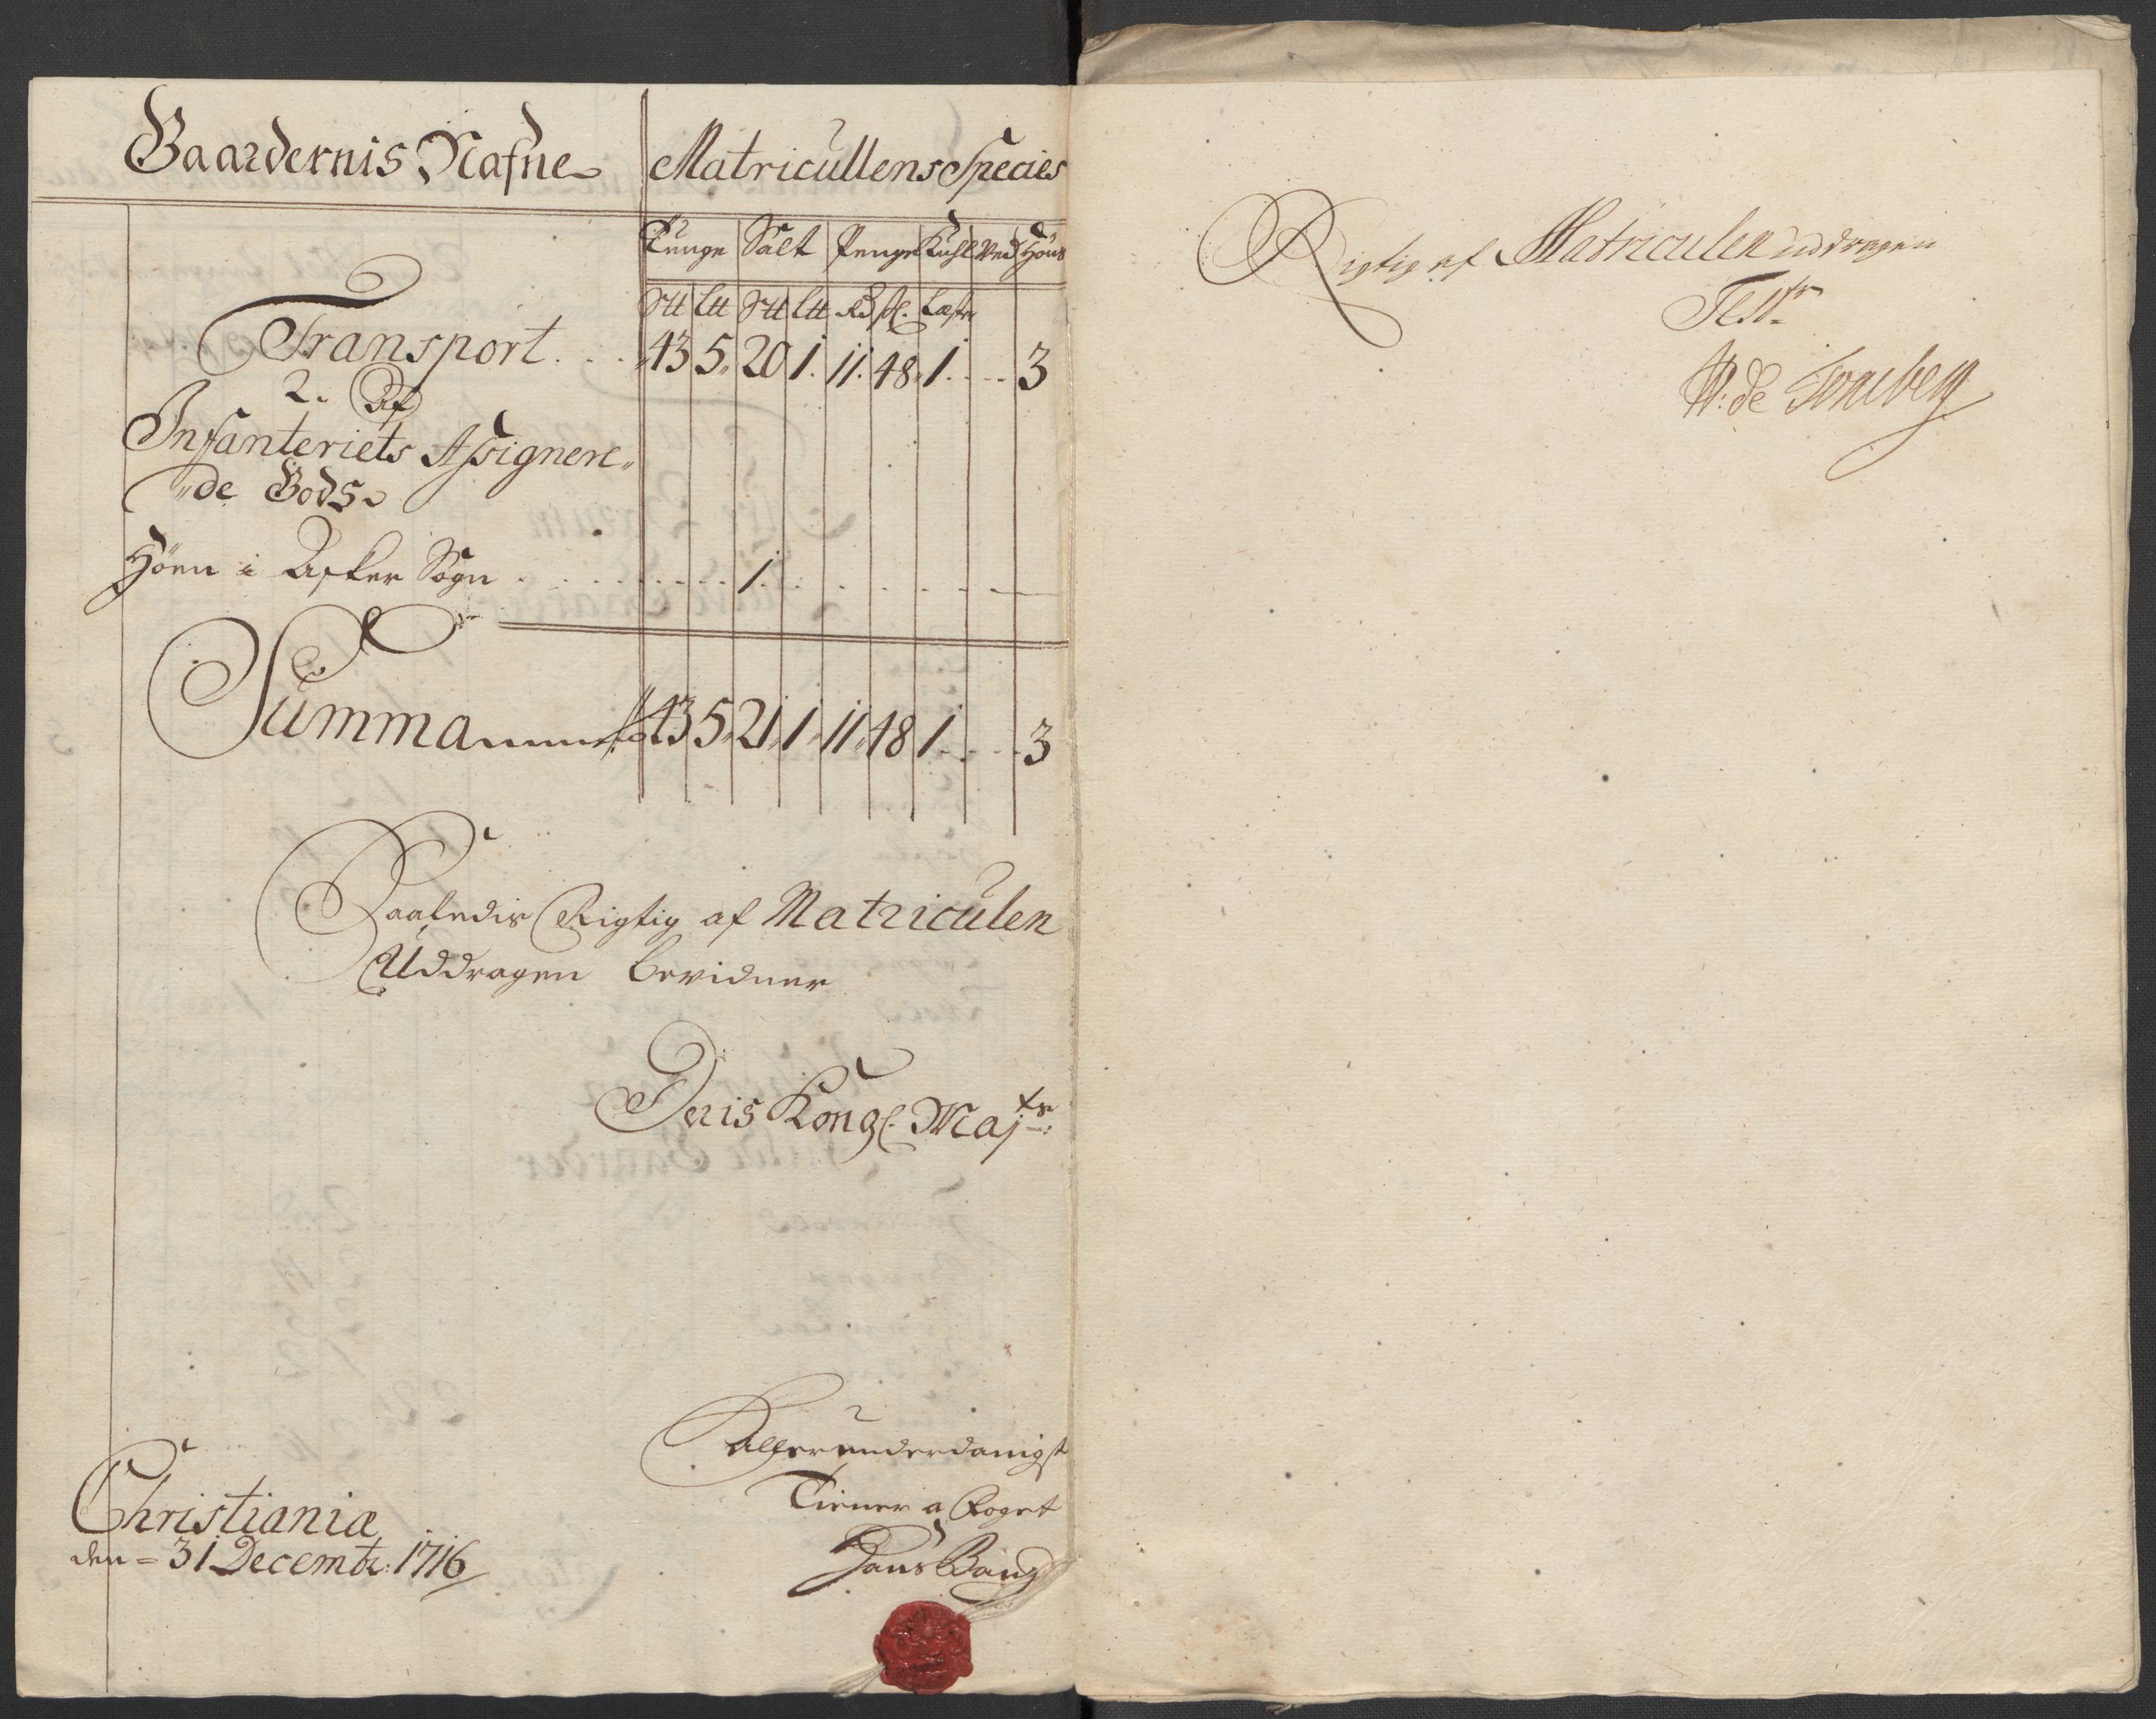 Gaardernis Nafne Matricullens Species
Tunge Salt Penge Kuhl Ved Höns
S℔ L℔ S℔ L℔ Rd ſl. Læster
Transport . . . 43 5. 20 1. 11. 48. 1. . . . 3
2. Af
Infanteriets Assignere„
„de Gods
Höen i Asker Sogn . . . . . . . 1. . . . . . .
Summa 43 5. 21. 1. 11. 48 1. . . . 3
Saaledis Rigtig af Matriculen
Uddragen bevidner
Deris Kongl. Majtz:
Allerunderdanigst
Tiener a Foget
Hans Bang
Christiania
den = 31 Decembr: 1716
Rigtig af Matriculen uddragen
Test
P: de Tonsberg